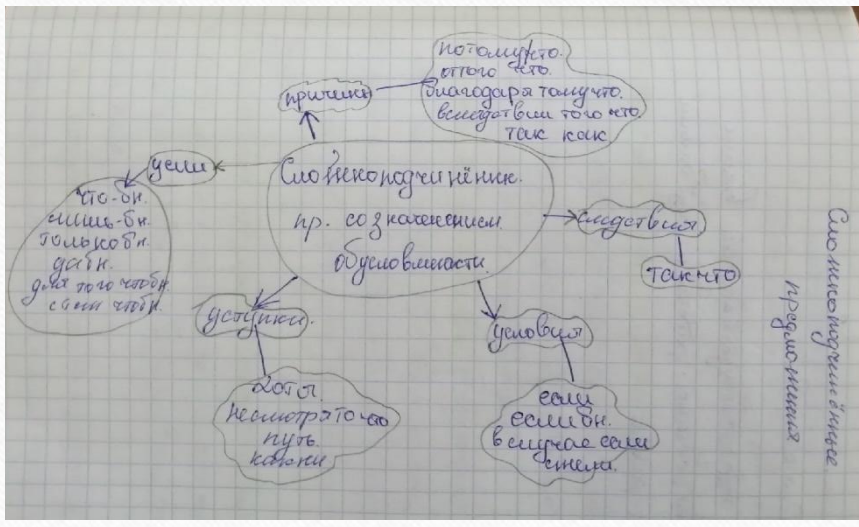 потому что.
оттого что.
благодаря тому что.
вследствии того что
так как
причины
цели
что-бы.
лишь-бы.
только бы.
дабы.
для того чтобы.
с тем чтобы.
Сложноподчинённ.
пр. со значением
обусловленности.
следствия
так что
уступки.
хоты
несмотря то что
пусть.
как ни
условия
если
если бы.
в случае если
Сложноподчинённые
предложения